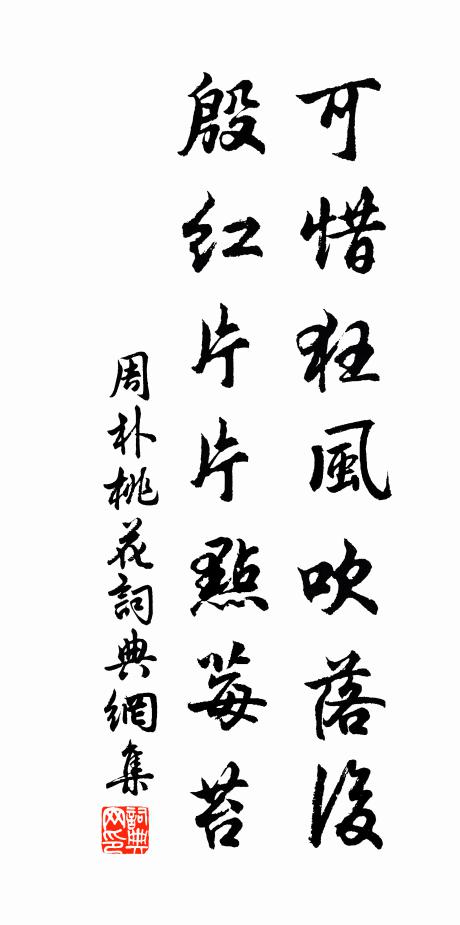 可惜狂風吹落後
殷红片片點莓苔
周朴桃花詞典網集
詞典
网印